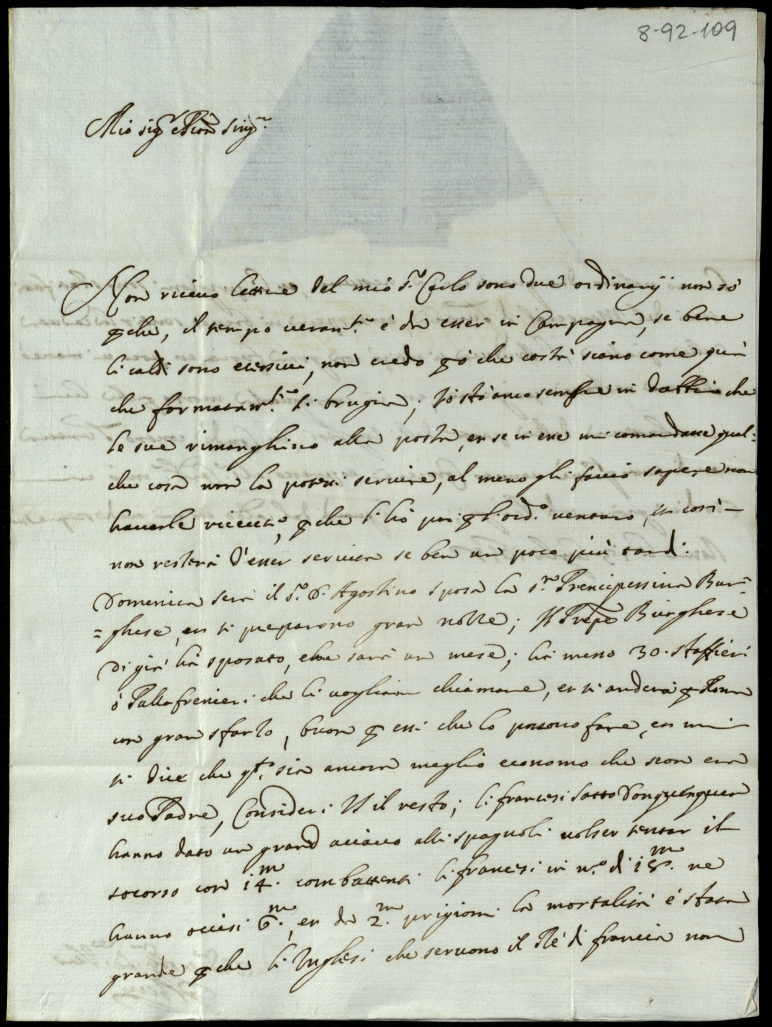 8-92-109
Mio sigr e Pron singr
Non riceuo lettere del mio sr Carlo sono due ordinarij non sò
ꝑche, il tempo ueramte è da esser in Campagna, se bene
li caldi sono ecessiui, non credo ꝑò che costà siano come quà
che formatamte si brugia; Io stò ancò sempre in dubbio che
le sue rimanghino alla posta, et se in esse mi comandasse qual=
che cosa non la potessi seruire, al meno gli faccio sapere non
hauerle riceute, ꝑche si hò ordo venturo, cossi
non resterà d'esser seruita se ben un poco più tardi.
Domenica serà il so D. Agostino sposa la sra Prencipessina Bur=
=ghese, et si preparono gran nozze; Il Prꝑe Burghese
di già hà sposato, che sarà un mese; hà messo 30. staffieri
ò Pallafrenieri che li uogliam chiamare, et si anderà ꝑ Roma
con gran sfarzo, buon ꝑ essi che lo possono fare, et mi
si dice che qto sia ancora meglio economo che non era
suo Padre, Consideri V il resto; li francesi sotto Donquerquen
hanno dato un grand acciacco alli spagnoli uolser tentar il
socorso con 14m. combattenti li francesi in no di 18m. ne
hanno occisi 6m., et da 2m. prigioni la mortalità è stata
grande ꝑche li Inglesi che seruono il Rè di francia non